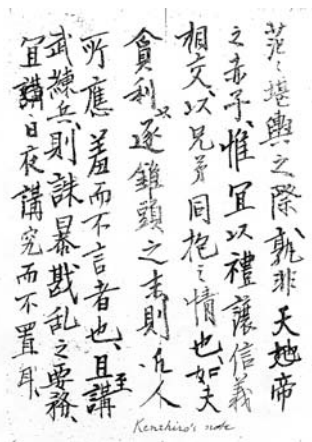 茫々堪輿之際、孰非天地帝
之赤子、惟宜以禮讓信義
相交、以兄弟同抱之情也、如夫
貪利、以逐錐頭之末則、凡人
所應羞而不言者也、且至講
武練兵、則誅暴戡乱之要務、
宜講日夜講究而不置耳、
Kenchiro's note